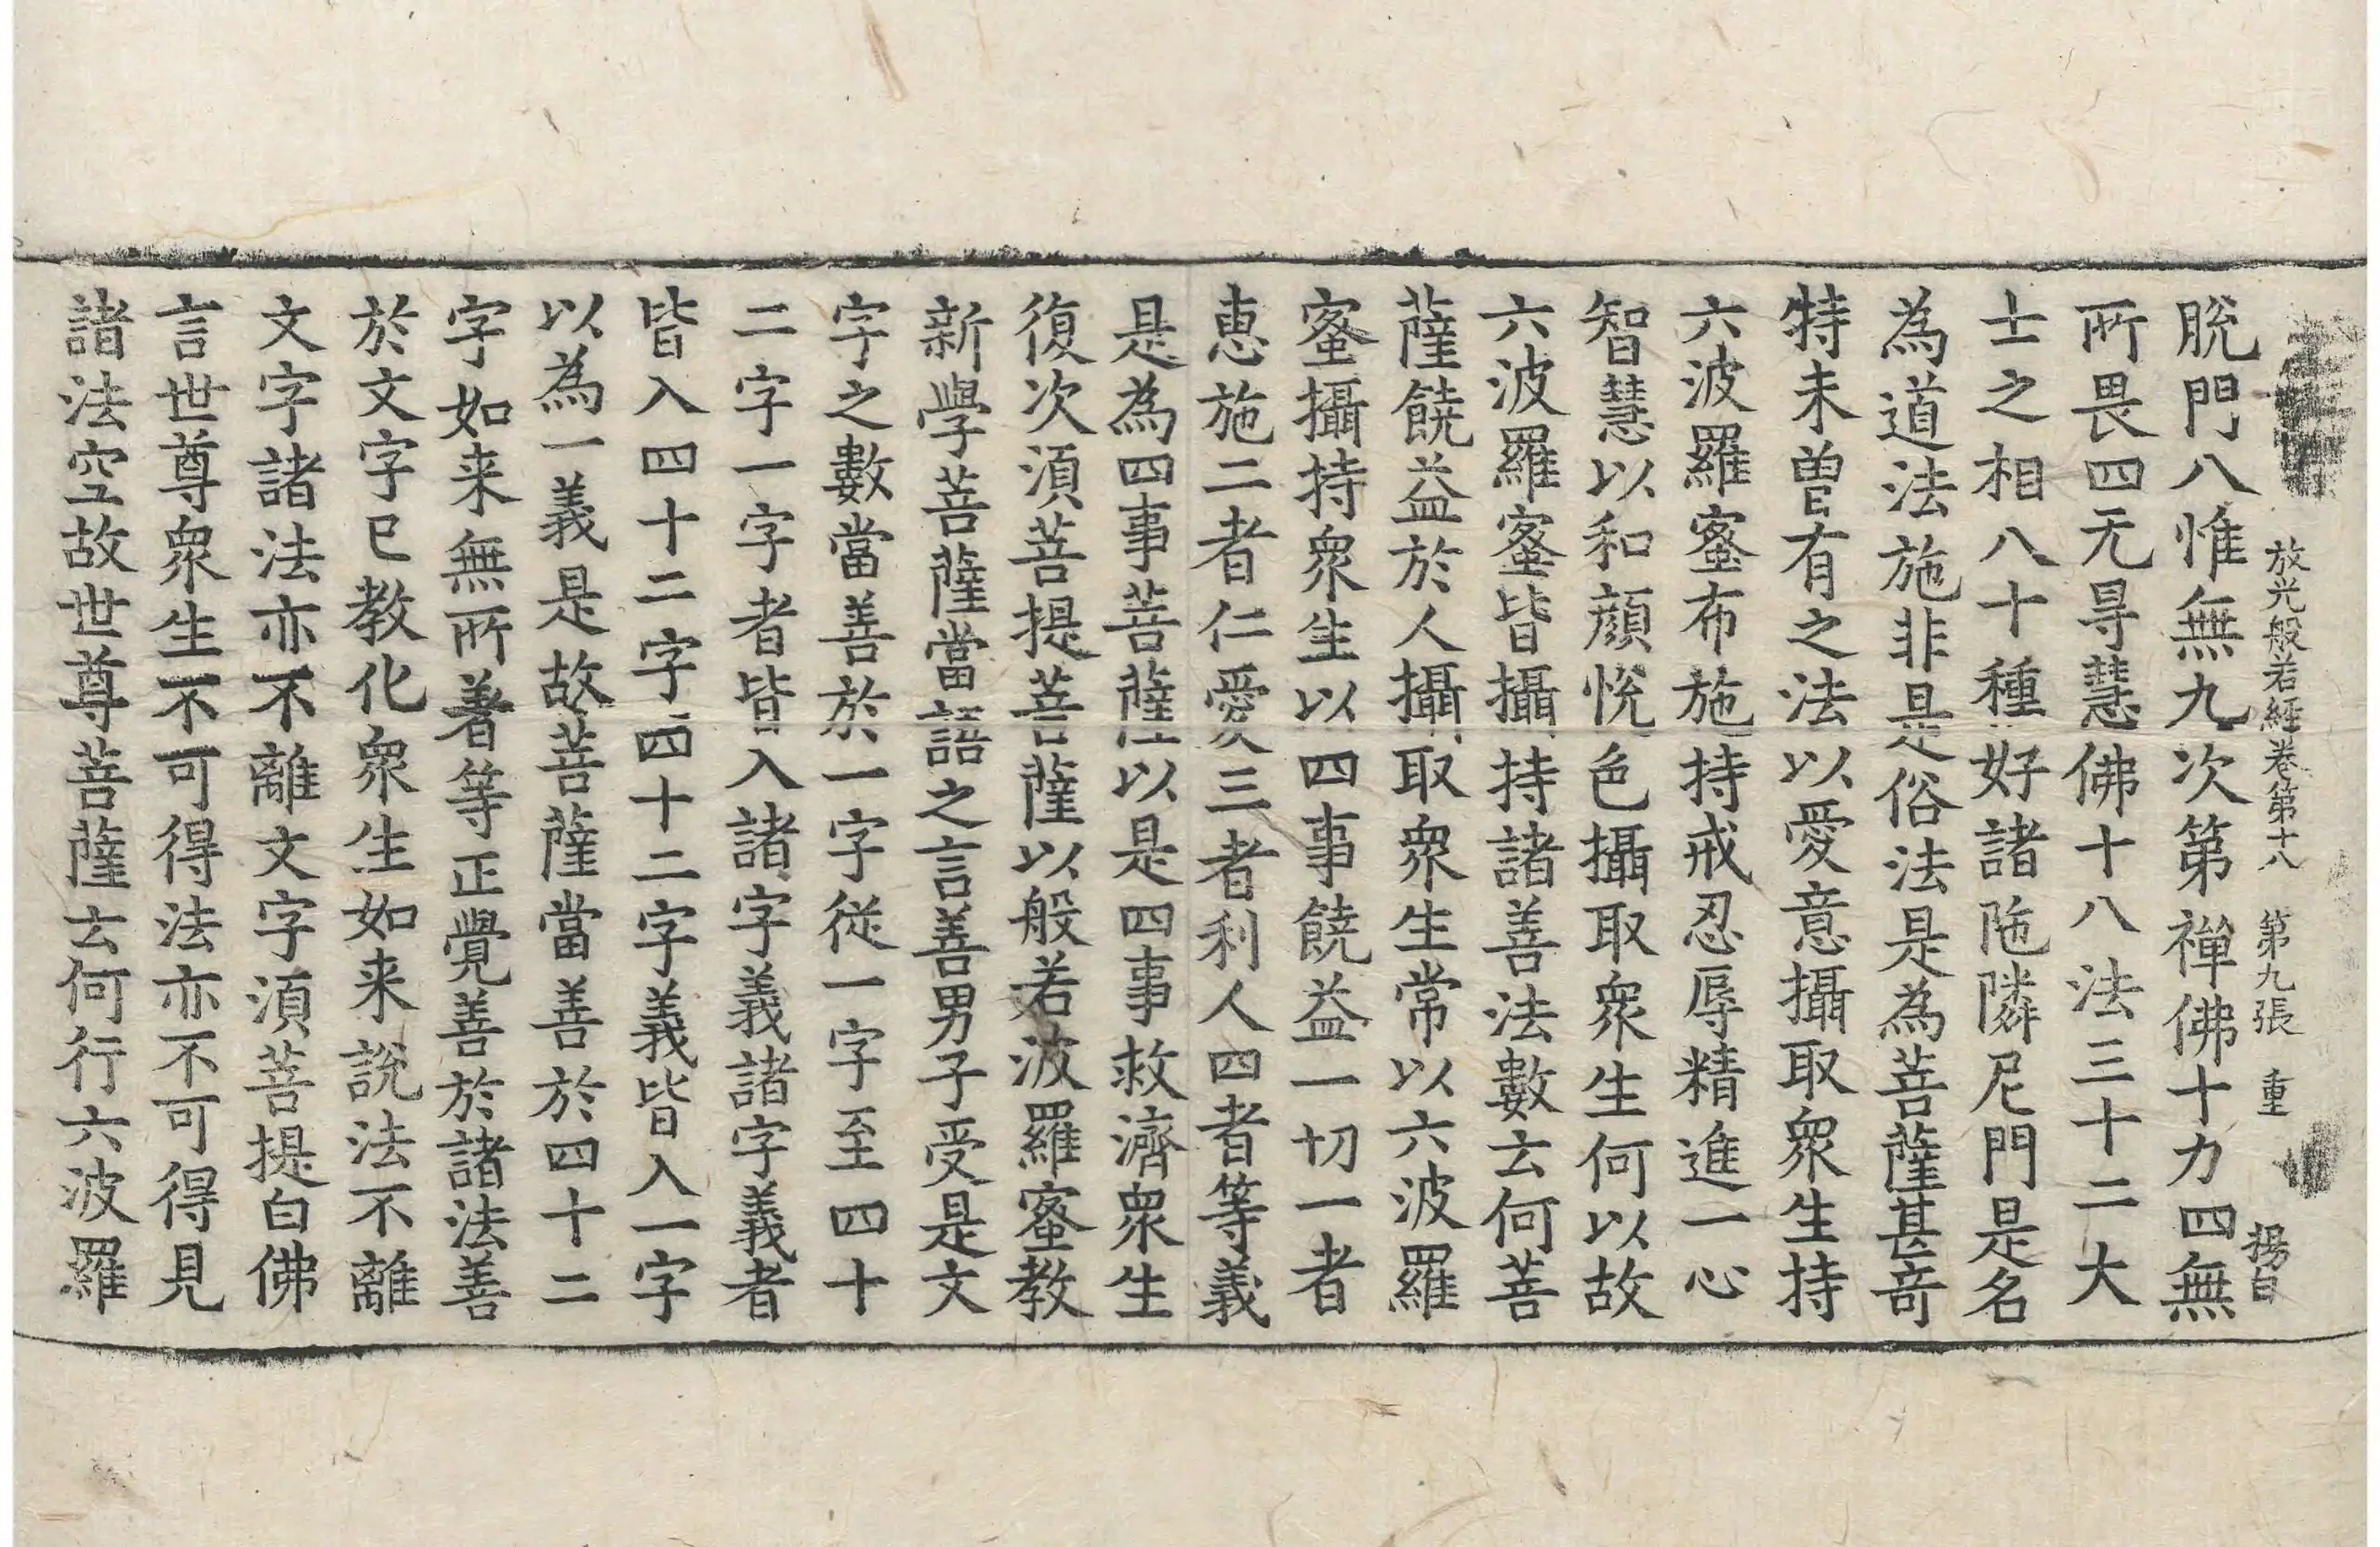 放光般若經卷第十八 第九張 重 楊白
脫門八惟無九次第禪佛十力四無
所畏四无㝵慧佛十八法三十二大
士之相八十種好諸陁隣尼門是名
為道法施非是俗法是為菩薩甚奇
特未曽有之法以愛意攝取衆生持
六波羅蜜布施持戒忍辱精進一心
智慧以和顔悅色攝取衆生何以故
六波羅蜜皆攝持諸善法數云何菩
薩饒益於人攝取衆生常以六波羅
蜜攝持衆生以四事饒益一切一者
恵施二者仁愛三者利人四者等義
是為四事菩薩以是四事救濟衆生
復次湏菩提菩薩以般若波羅蜜教
新學菩薩當語之言善男子受是文
字之數當善於一字從一字至四十
二字一字者皆入諸字義諸字義者
皆入四十二字四十二字義皆入一字
以為一義是故菩薩當善於四十二
字如来無所著等正覺善於諸法善
於文字已教化衆生如来說法不離
文字諸法亦不離文字湏菩提白佛
言世尊衆生不可得法亦不可得見
諸法空故世尊菩薩云何行六波羅